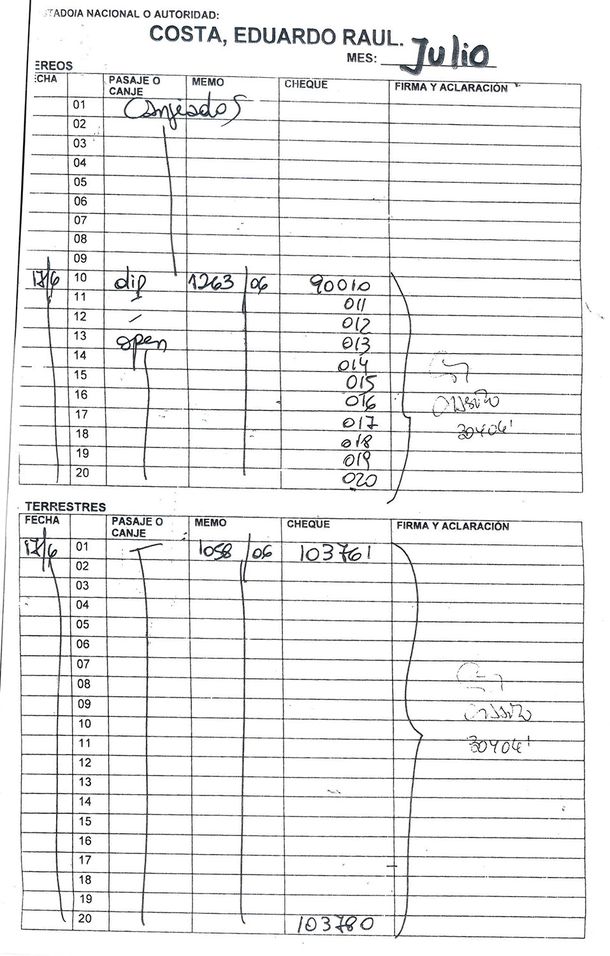 TADO/A NACIONAL O AUTORIDAD:
COSTA, EDUARDO RAUL.
MES: Julio
EREOS
ECHA PASAJE O CANJE MEMO CHEQUE FIRMA Y ACLARACIÓN
01 Canjeados
02
03
04
05
06
07
08
09
17/6 10 dip 1263 06 90010
11 011
12 012
13 open 013
14 014
15 015
16 016
17 017
18 018
19 019
20 020
30404
TERRESTRES
FECHA PASAJE O CANJE MEMO CHEQUE FIRMA Y ACLARACIÓN
17/6 01 T 1058 06 103761
02
03
04
05
06
07
08
09
10
11
30404
12
13
14
15
16
17
18
19
20 103780